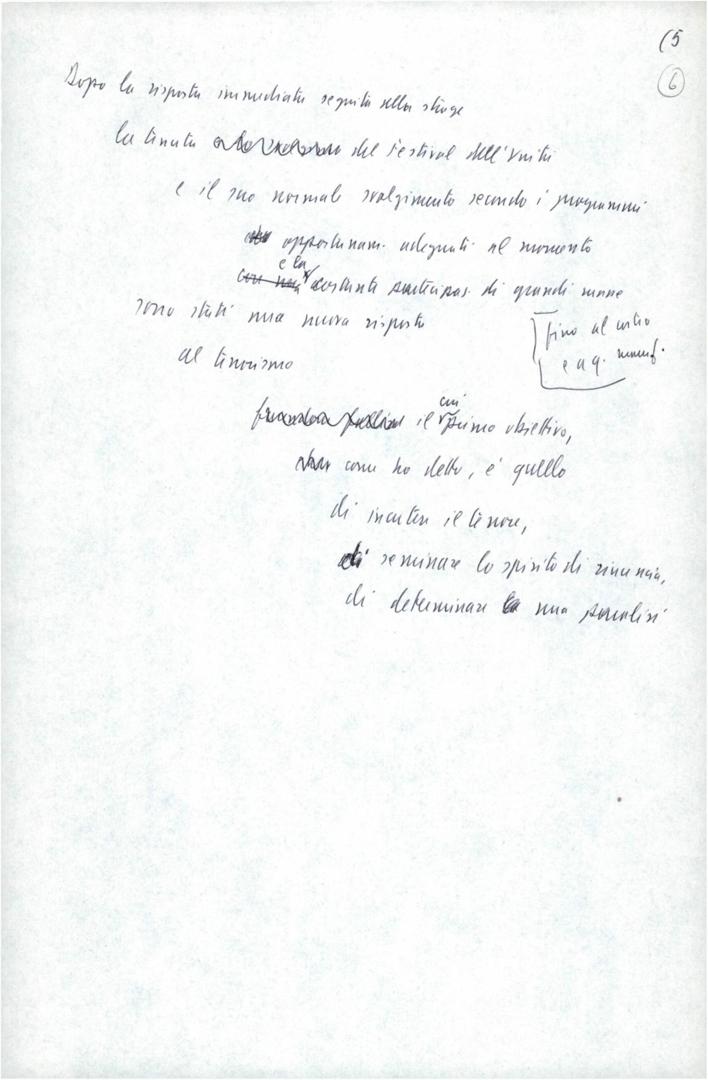 (5
6
Dopo la risposta immediata seguita alla strage
la tenuta del Festival dell'Unità
e il suo normale svolgimento secondo i programmi
opportunam. adeguati al momento
e la
costante partecipaz. di grandi masse
sono stati una nuova risposta
fino al
e a q.
al terrorismo
cui
il primo obiettivo,
come ho detto, è quello
di incutere il terrore,
di seminare lo spirito di rinuncia,
di determinare una paralisi